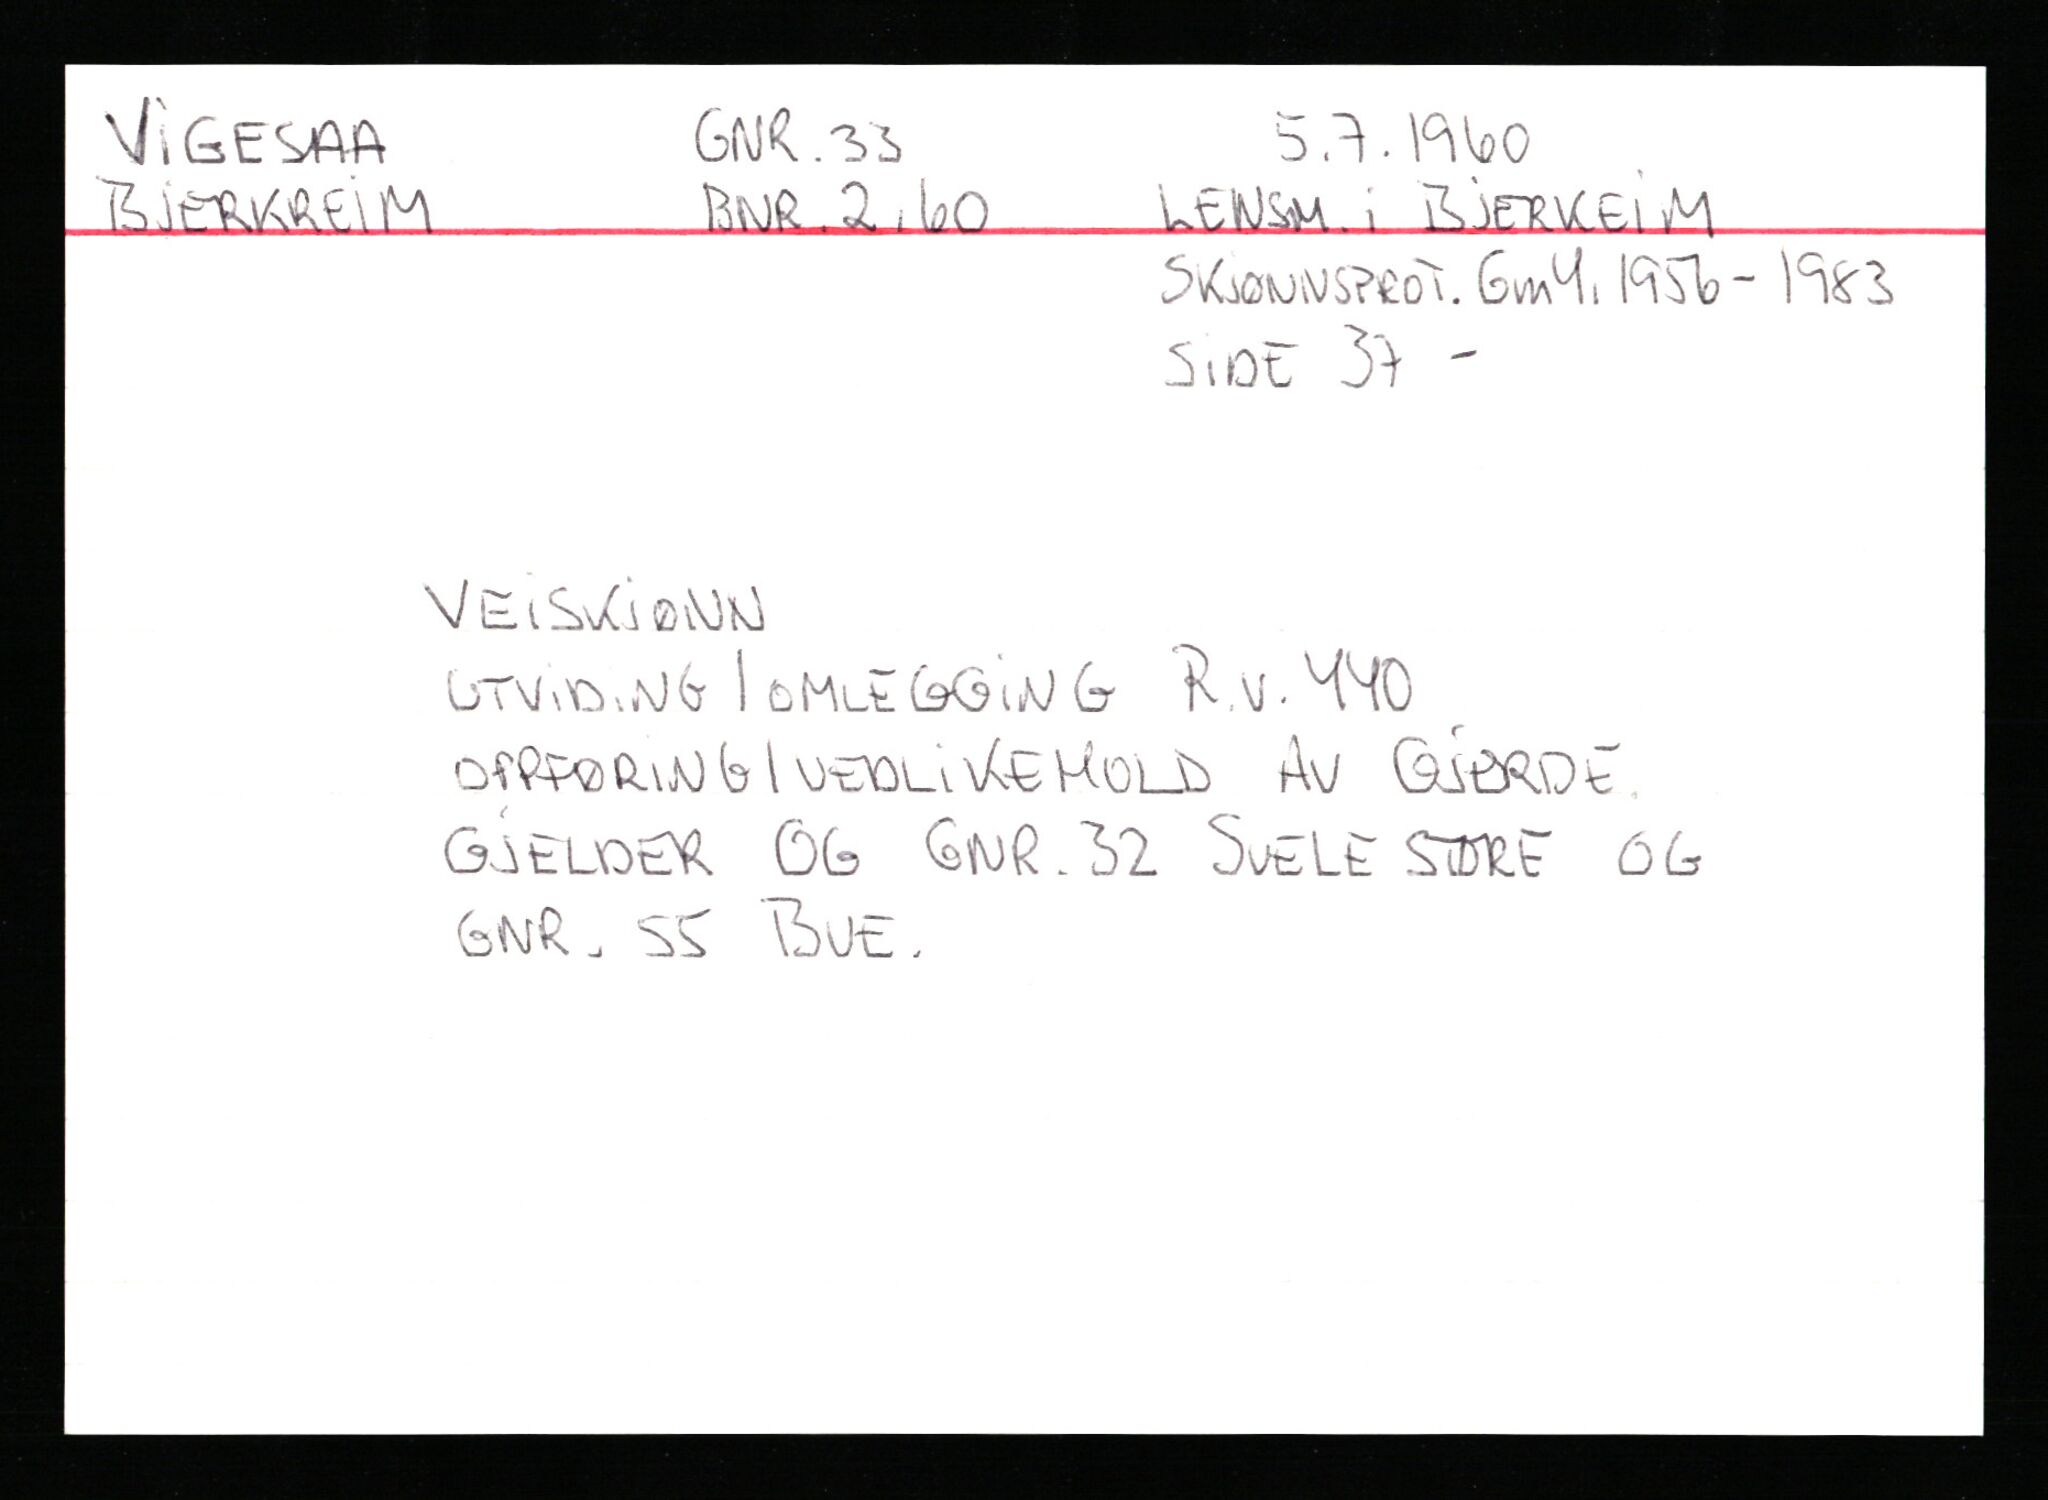 VIGESAA GNR. 33 5.7.1960
BJERKREIM BNR. 2,60 LENSM. i BJERKEIM
SKJØNNSPROT. Gm4, 1956 - 1983
SIDE 37 -
VEISKJØNN
UTVIDING/OMLEGGING R.V. 440
OPPFØRING/VEDLIKEHOLD AV GJERDE.
GJELDER OG GNR. 32 SVELE STØRE OG
GNR. 55 BUE.